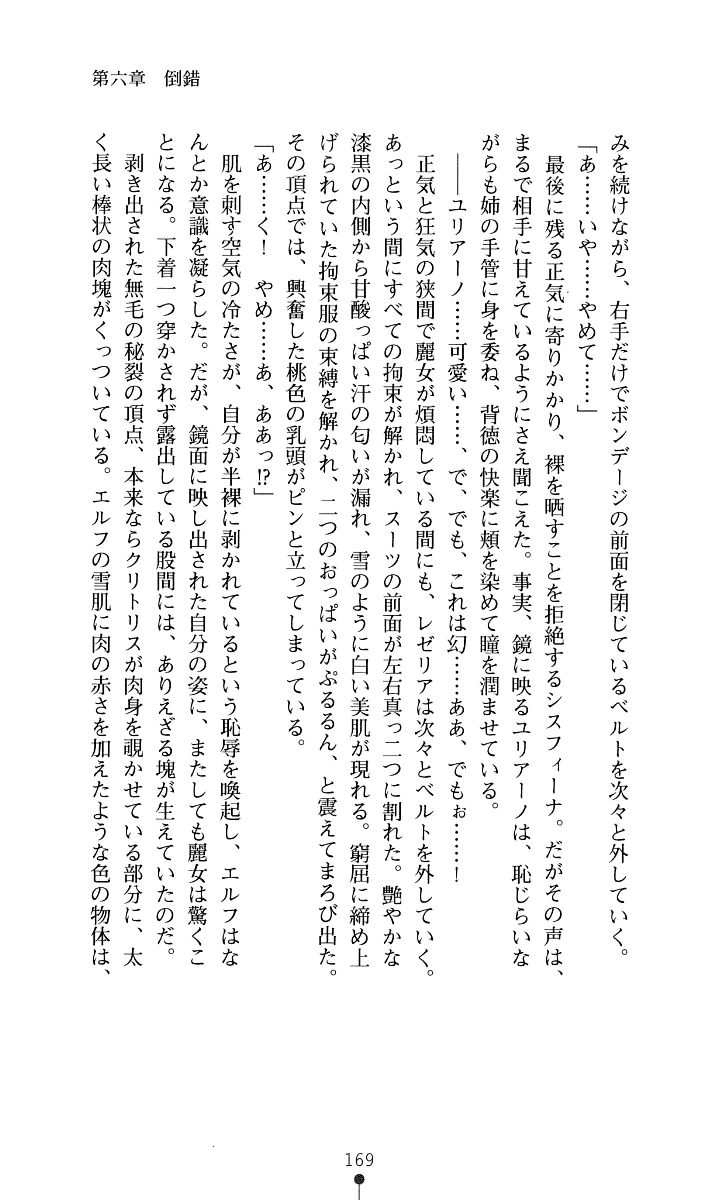 第六章　倒錯
みを続けながら、右手だけでボンデージの前面を閉じているベルトを次々と外していく。
「あ……いや……やめて……」
　最後に残る正気に寄りかかり、裸を晒すことを拒絶するシスフィーナ。だがその声は、
まるで相手に甘えているようにさえ聞こえた。事実、鏡に映るユリアーノは、恥じらいな
がらも姉の手管に身を委ね、背徳の快楽に頬を染めて瞳を潤ませている。
　――ユリアーノ……可愛い……、で、でも、これは幻……ああ、でもぉ……！
　正気と狂気の狭間で麗女が煩悶している間にも、レゼリアは次々とベルトを外していく。
あっという間にすべての拘束が解かれ、スーツの前面が左右真っ二つに割れた。艶やかな
漆黒の内側から甘酸っぱい汗の匂いが漏れ、雪のように白い美肌が現れる。窮屈に締め上
げられていた拘束服の束縛を解かれ、二つのおっぱいがぷるるん、と震えてまろび出た。
その頂点では、興奮した桃色の乳頭がピンと立ってしまっている。
「あ……く！　やめ……あ、ああっ!?」
　肌を刺す空気の冷たさが、自分が半裸に剥かれているという恥辱を喚起し、エルフはな
んとか意識を凝らした。だが、鏡面に映し出された自分の姿に、またしても麗女は驚くこ
とになる。下着一つ穿かされず露出している股間には、ありえざる塊が生えていたのだ。
　剥き出された無毛の秘裂の頂点、本来ならクリトリスが肉身を覗かせている部分に、太
く長い棒状の肉塊がくっついている。エルフの雪肌に肉の赤さを加えたような色の物体は、
169